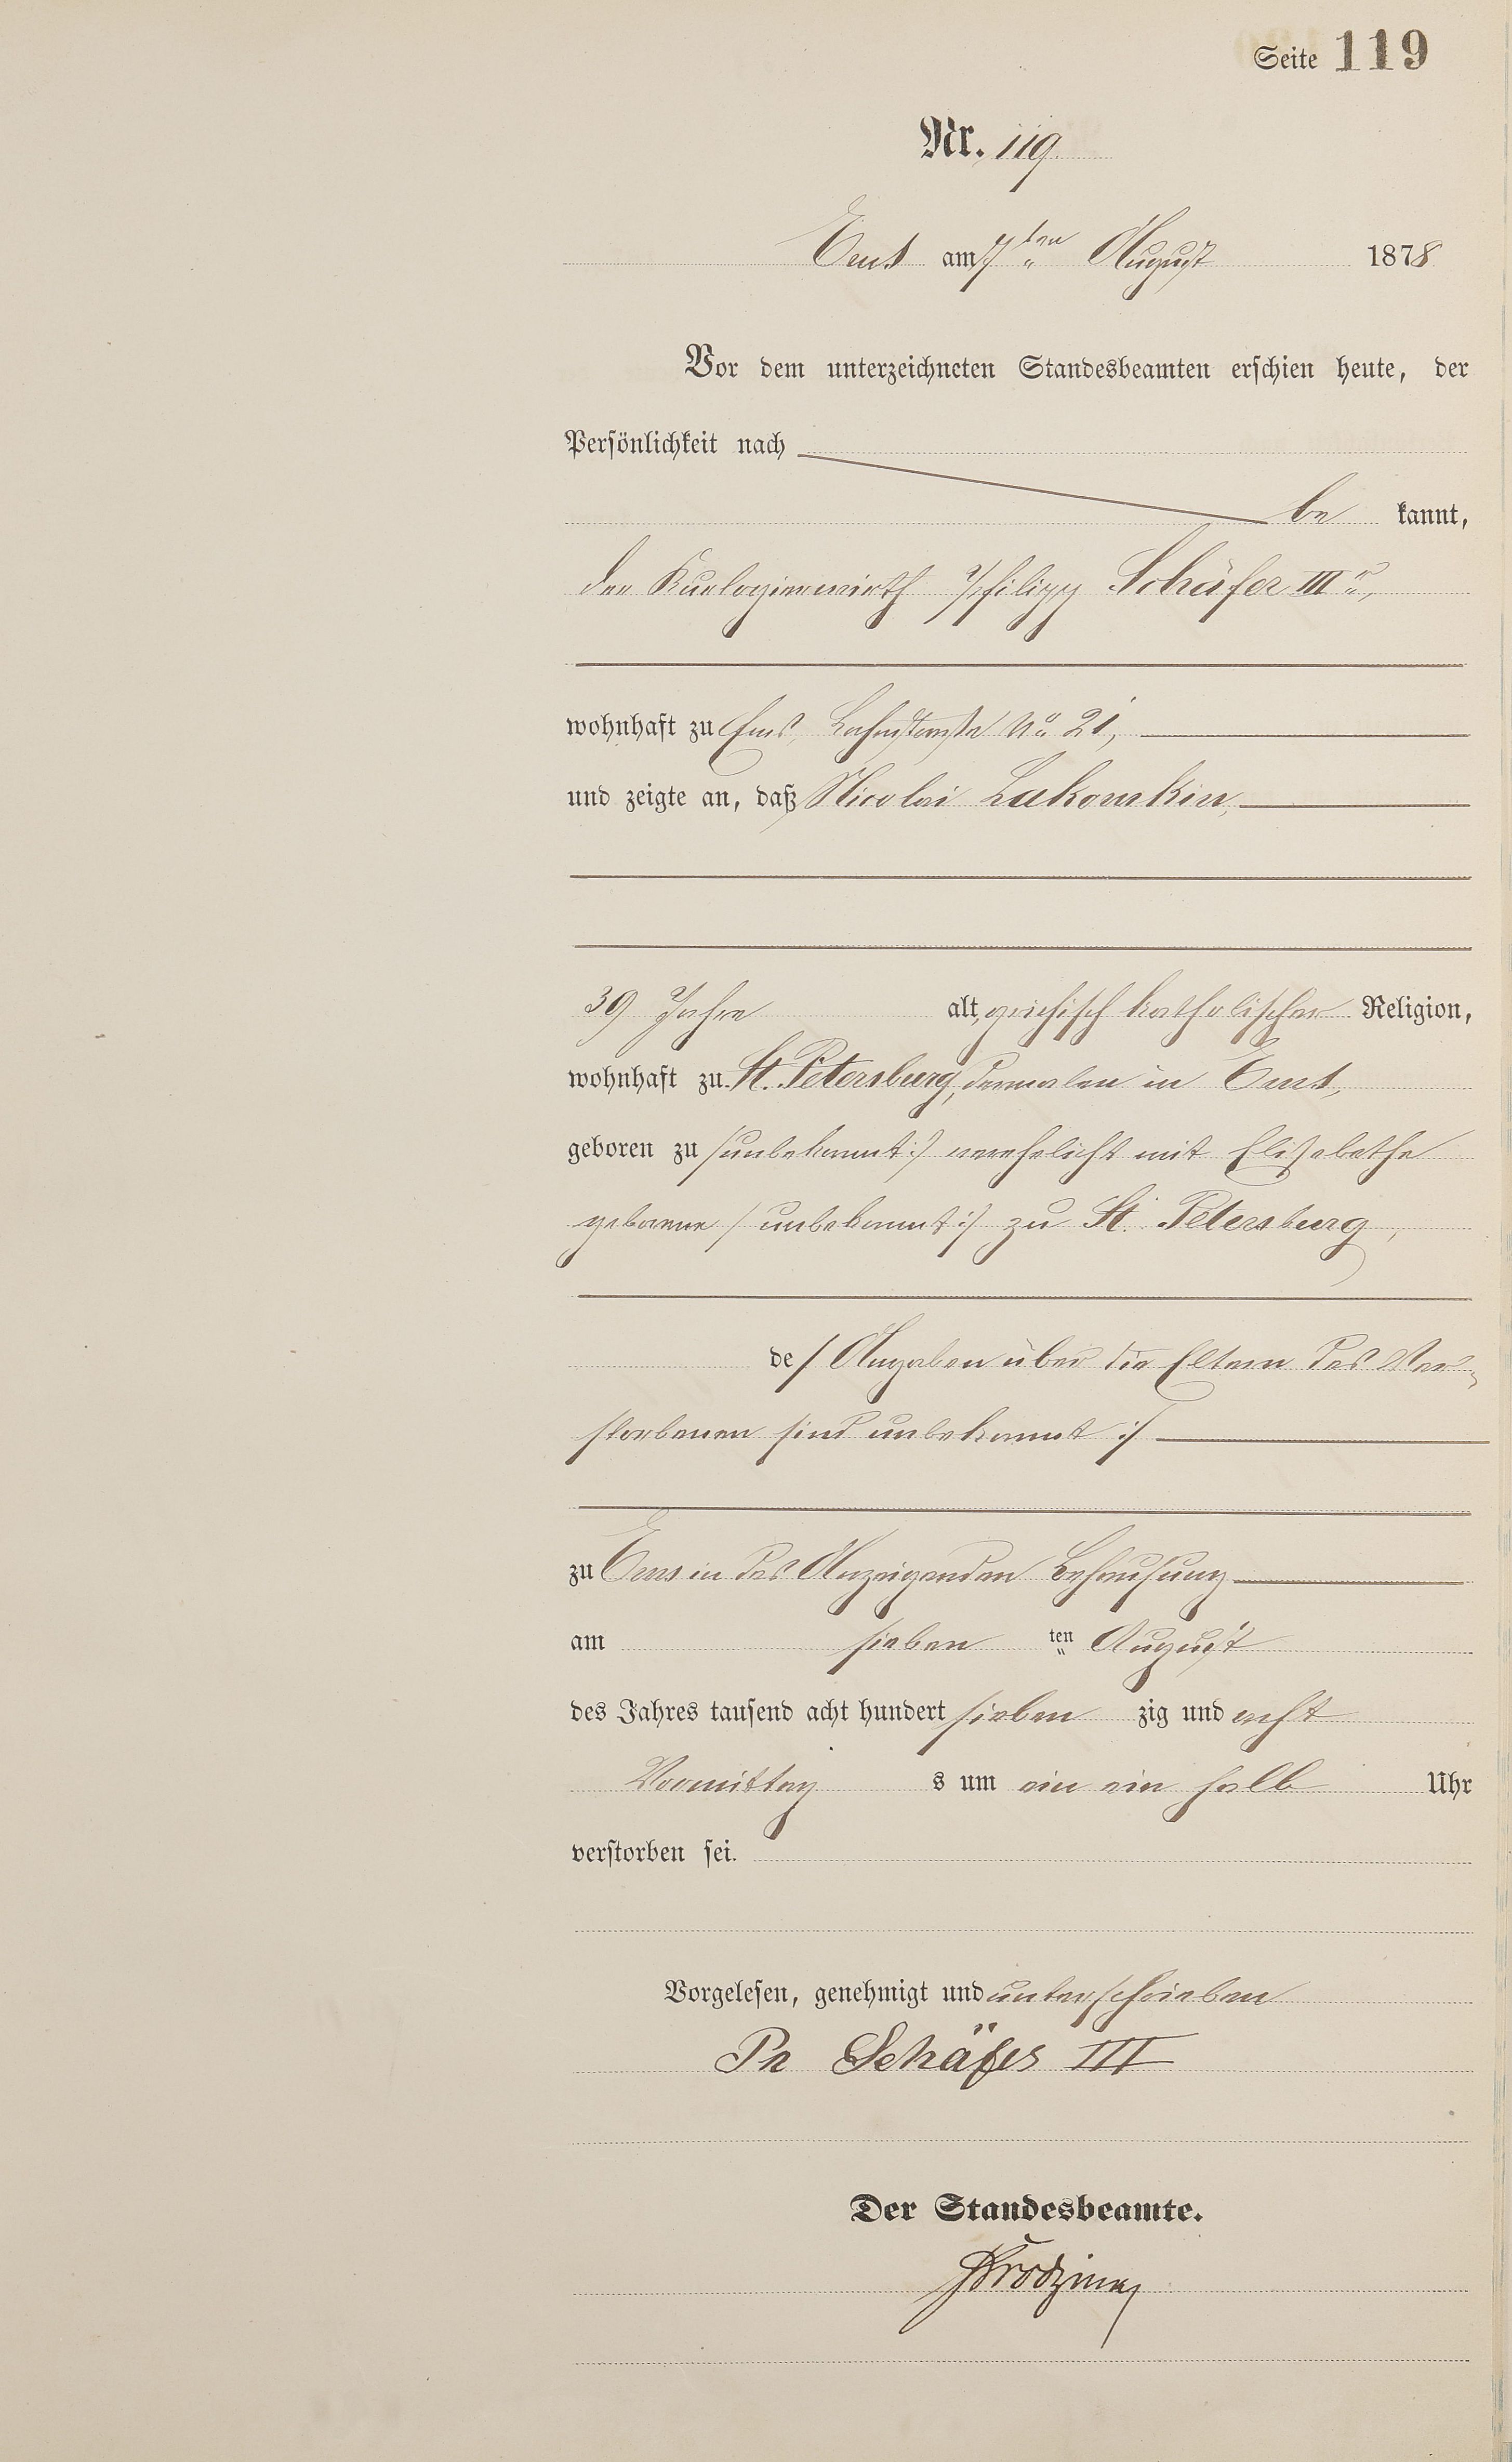 Seite 119
Nr. 119.
Ems am 7ten August 1878
Vor dem unterzeichneten Standesbeamten erschien heute, der
Persönlichkeit nach
be kannt,
der Kurlogierwirth Philipp Schäfer IIIr,
wohnhaft zu Ems, Lahnstraße No 21,
und zeigte an, daß Nicolai Lukomskin,
39 Jahre alt, griechisch katholischer Religion,
wohnhaft zu St. Petersburg, dermalen in Ems,
geboren zu /:unbekannt:/ verehelicht mit Elisabethe
geborene /:unbekannt:/ zu St. Petersburg,
de /: Angaben über die Eltern des Ver-
storbenen sind unbekannt :/
zu Ems in des Anzeigenden Behausung
am sieben ten August
des Jahres tausend acht hundert sieben zig und acht
Vormittag s um ein ein halb Uhr
verstorben sei.
Vorgelesen, genehmigt und unterschrieben
Ph Schäfer III
Der Standesbeamte.